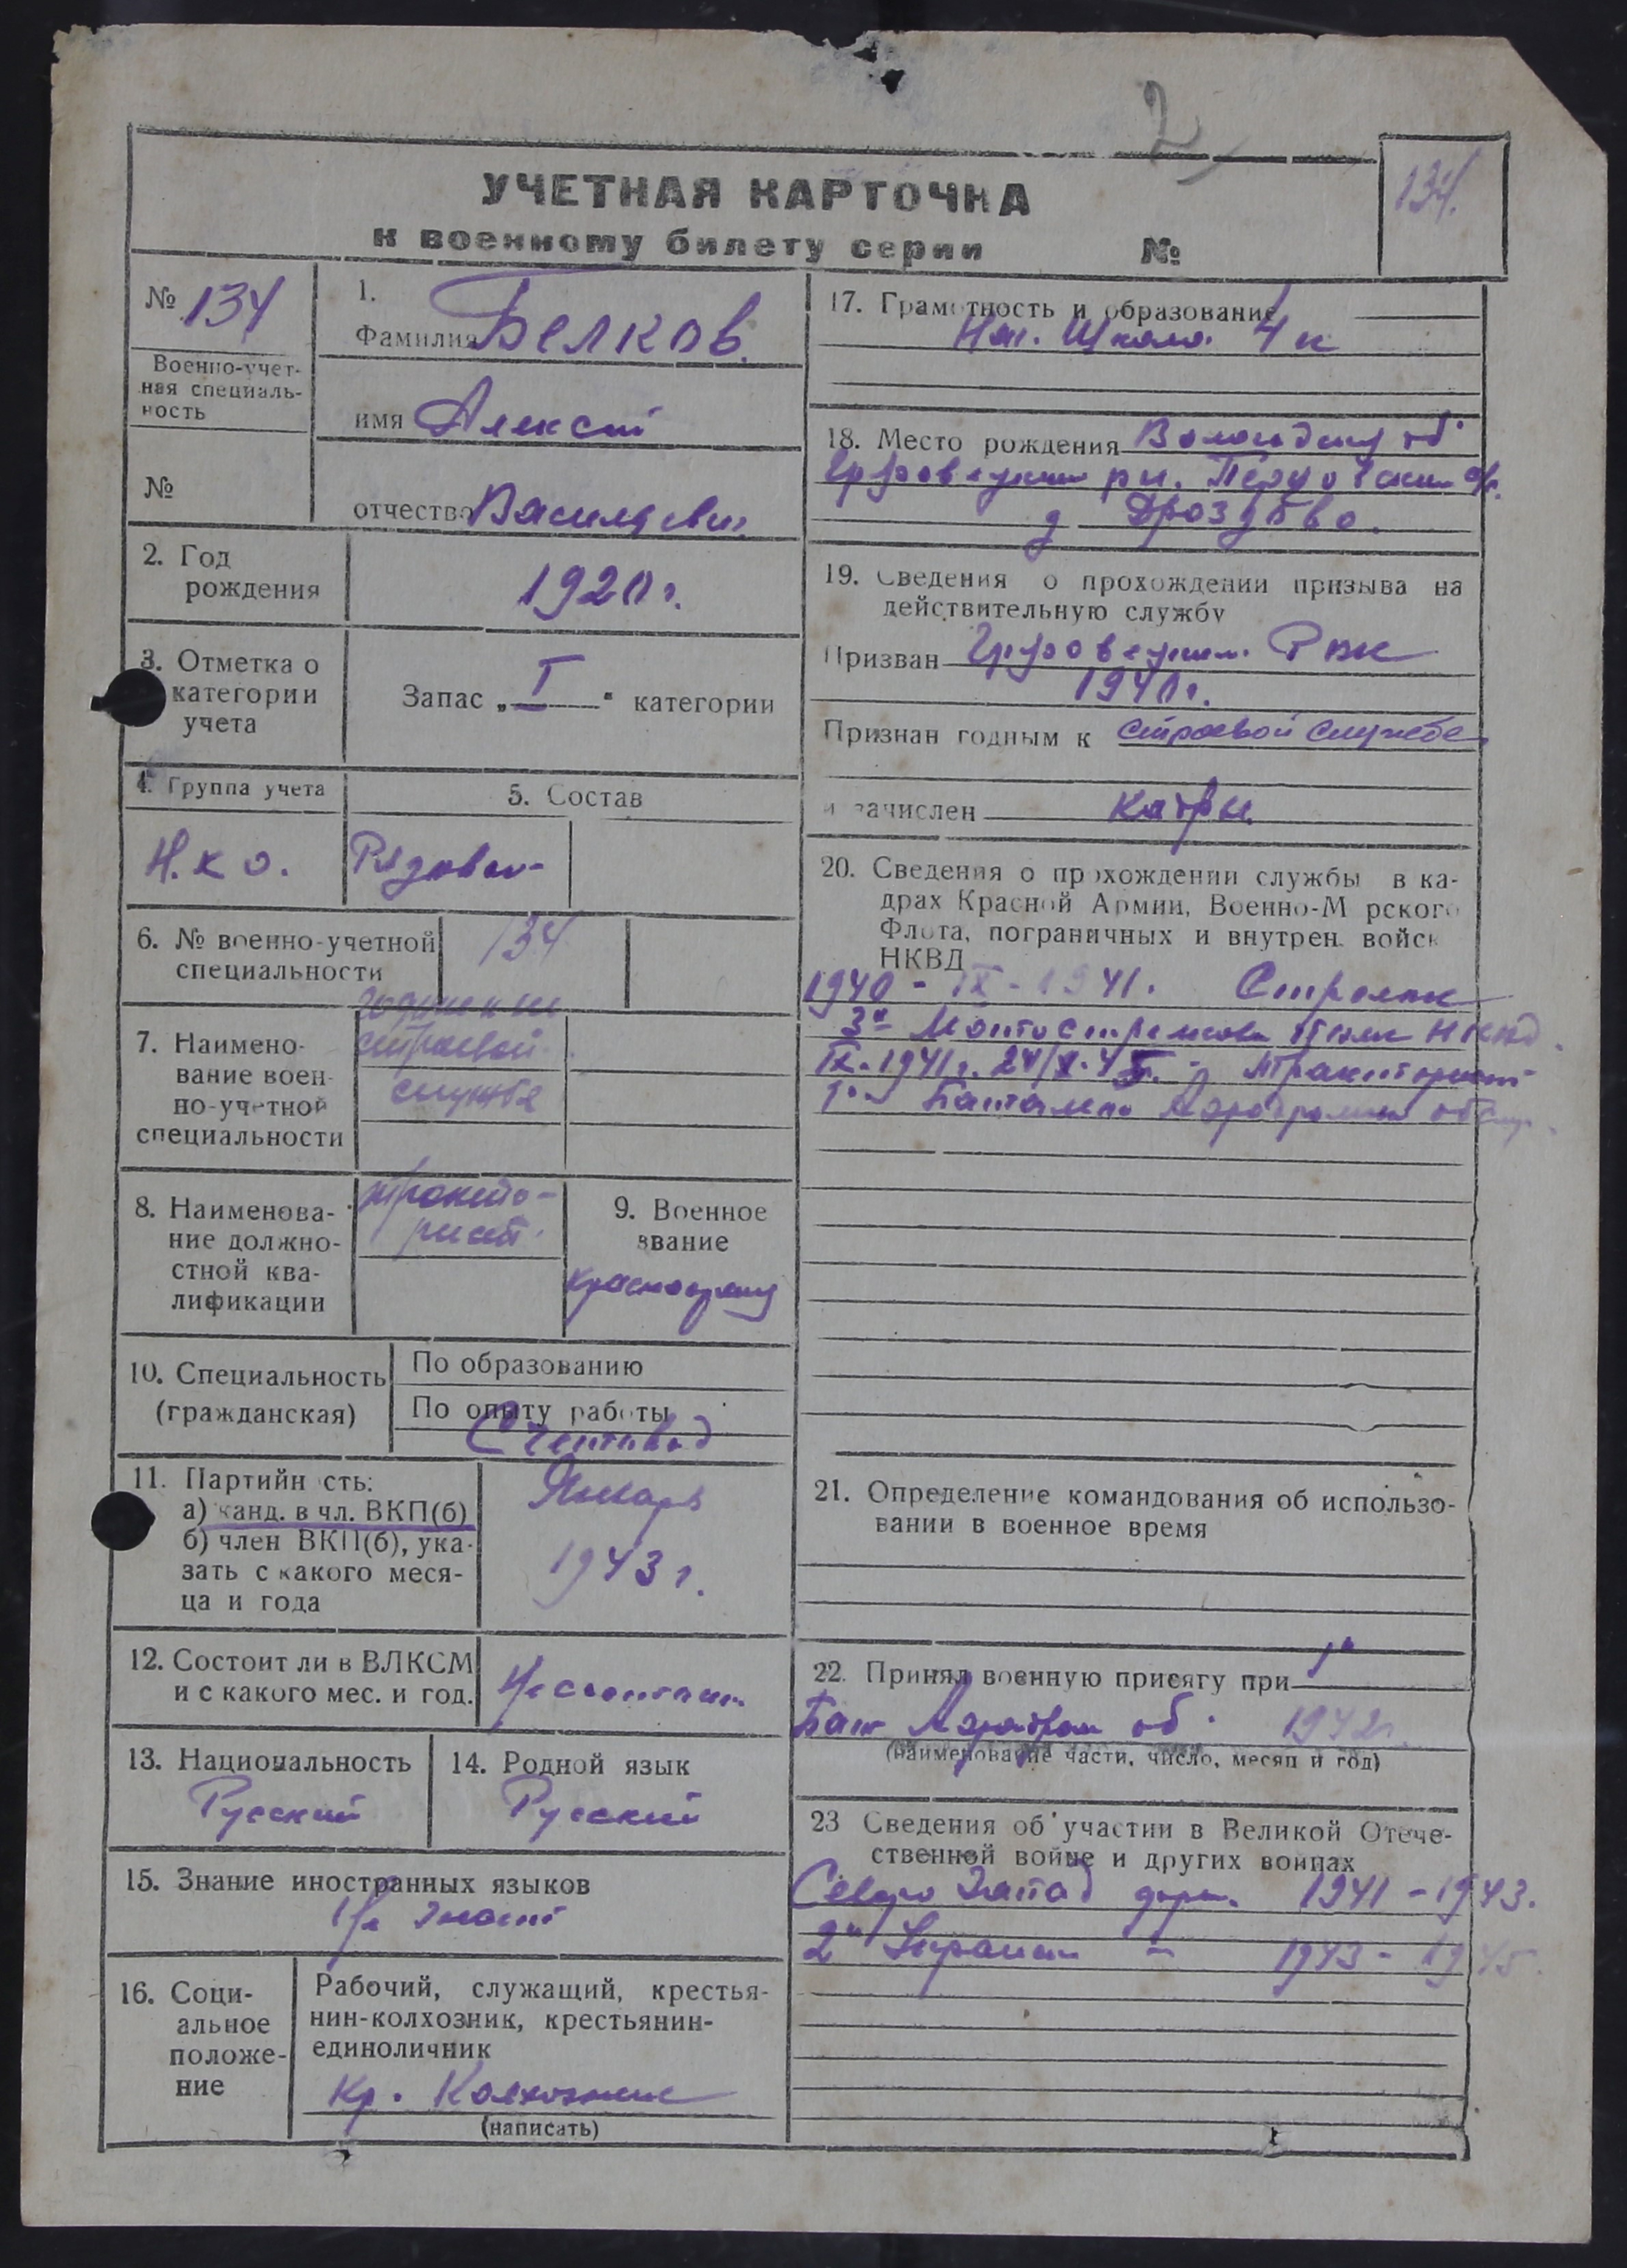 2
УЧЕТНАЯ КАРТОЧКА
134.
к военному билету серии №
№ 134
Военно-учет-
ная специаль-
ность
№
1.
Фамилия Белков.
имя Алексей
отчество Васильевич
2. Год
рождения
1920 г.
3. Отметка о
категории
учета
Запас „ I " категории
4. Группа учета
Н.К.О.
5. Состав
Рядовой
6. № военно-учетной
специальности
134
7. Наимено-
вание воен-
но-учетной
специальности
строевой
службе
8. Наименова-
ние должно-
стной ква-
лификации
тракто-
рист.
9. Военное
звание
красноармеец
10. Специальность
(гражданская)
По образованию
По опыту работы
Счетовод
11. Партийность:
а) канд. в чл. ВКП(б)
б) член ВКП(б), ука-
зать с какого меся-
ца и года
Январь
1943 г.
12. Состоит ли в ВЛКСМ
и с какого мес. и год.
Не состоит
13. Национальность
Русский
14. Родной язык
Русский
15. Знание иностранных языков
Не знает
16. Соци-
альное
положе-
ние
Рабочий, служащий, крестья-
нин-колхозник, крестьянин-
единоличник
Кр. Колхозник
(написать)
17. Грамотность и образование
Нач. Школа. 4 к
18. Место рождения Вологодску об
рн.
д Дроздово.
19. Сведения о прохождении призыва на
действительную службу
Призван РВК
1940 г.
Признан годным к строевой службе
и зачислен кадры
20. Сведения о прохождении службы в ка-
драх Красной Армии, Военно-Морского
Флота, пограничных и внутрен. войск
НКВД
1940 - IX - 1941. Стрелок
3й Мотострелков полк НКВД.
IX. 1941 г. 24/X-45. - тракторист
1й Батальон Аэродромн обслуж.
21. Определение командования об использо-
вании в военное время
22. Принял военную присягу при 1й
Бат Аэродром об. 1942 г.
(наименование части, число, месяц и год)
23 Сведения об участии в Великой Отече-
ственной войне и других войнах
Северо Запад фрн. 1941 - 1943.
2й Украин - 1943 - 1945.